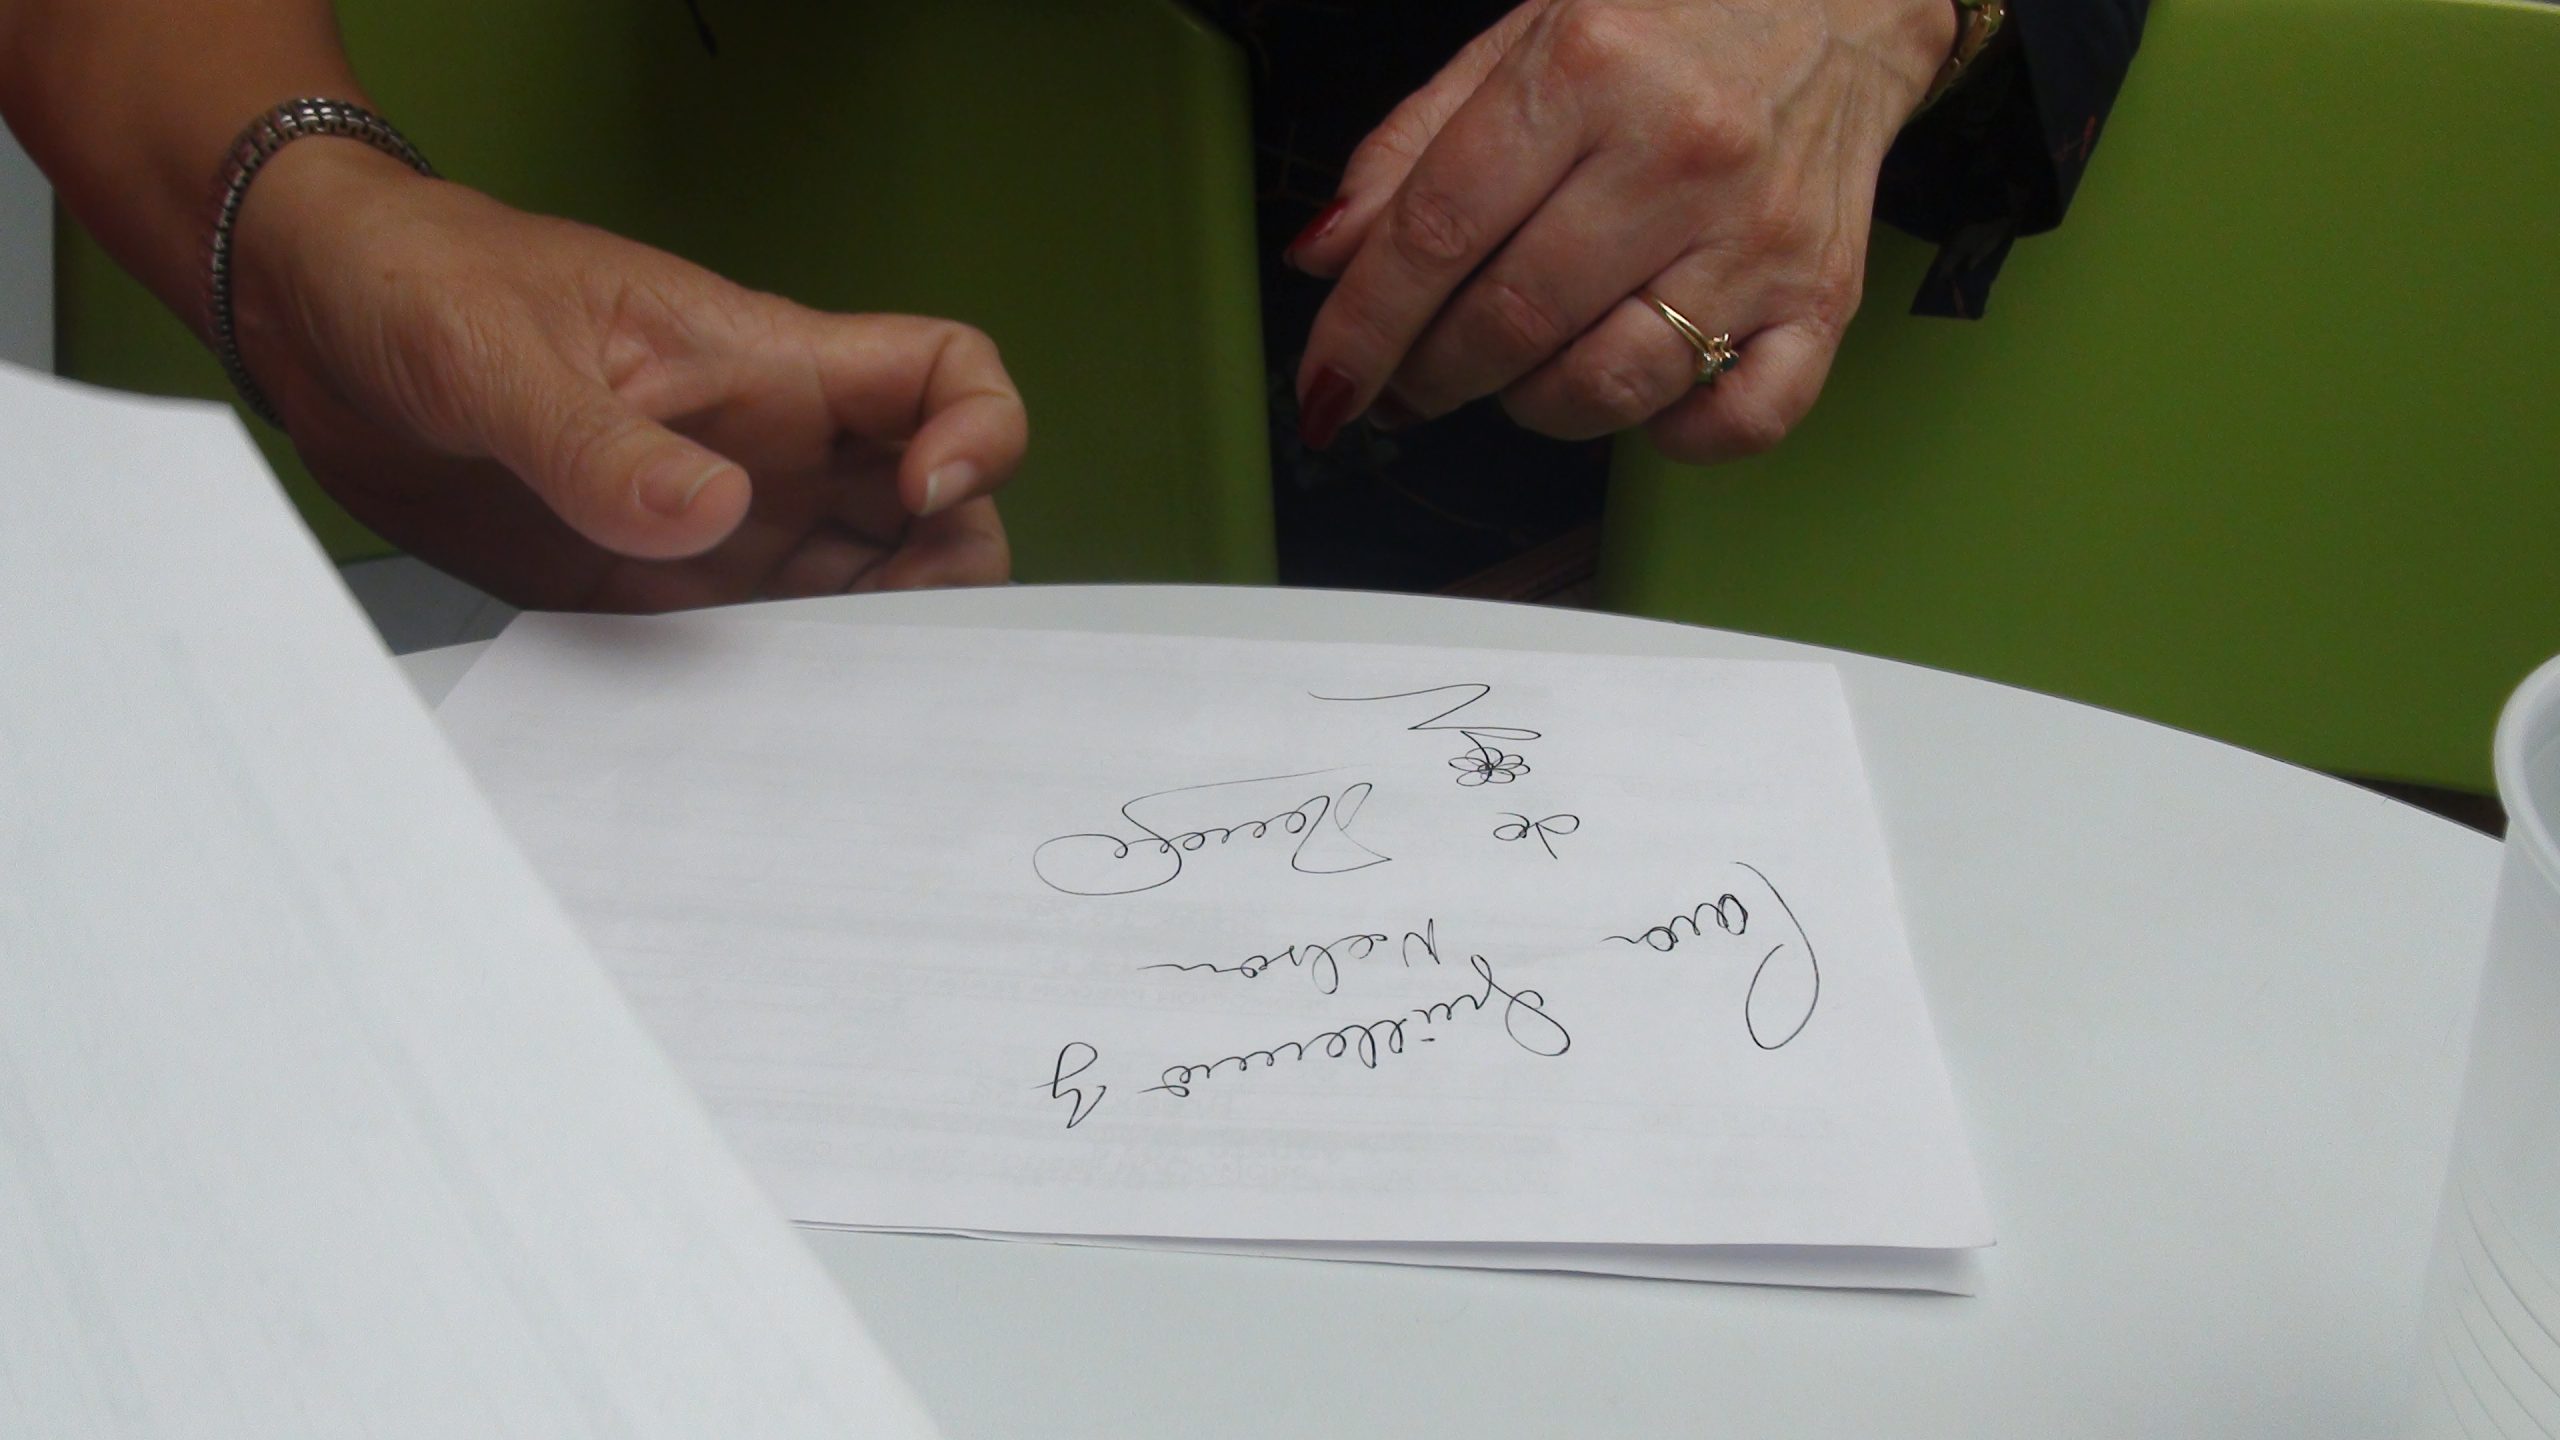 Para
Guillermo y
Nelson
de